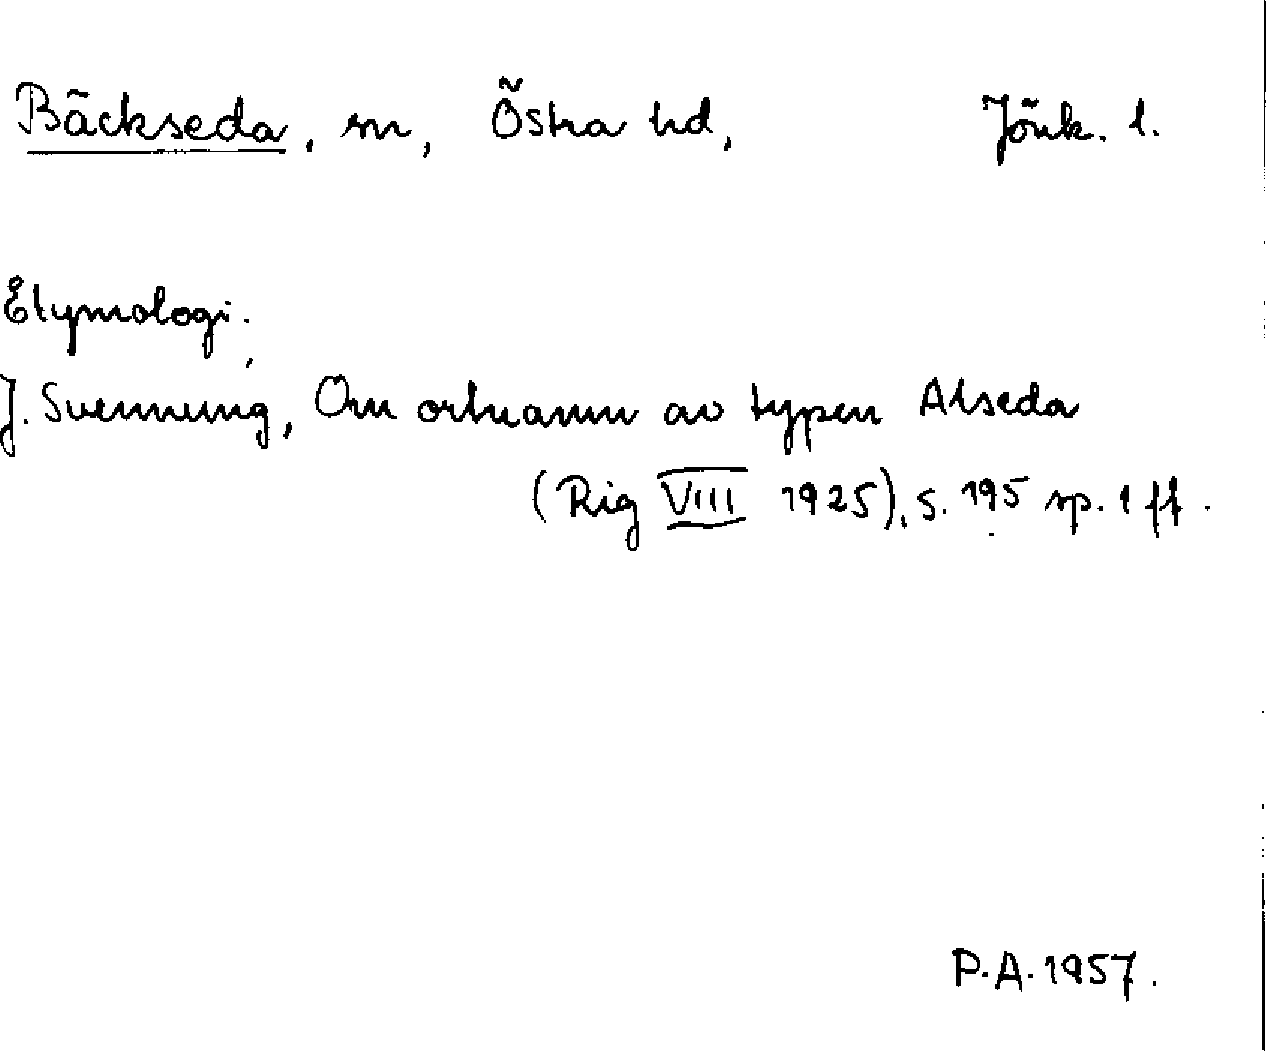 Bäckseda, sn, Östra hd, Jönk. l.
Etymologi:
J. Svennung, Om ortnamn av typen Alseda
(Rig VIII 1925), s. 195 sp. 1 ff.
P.A. 1957.